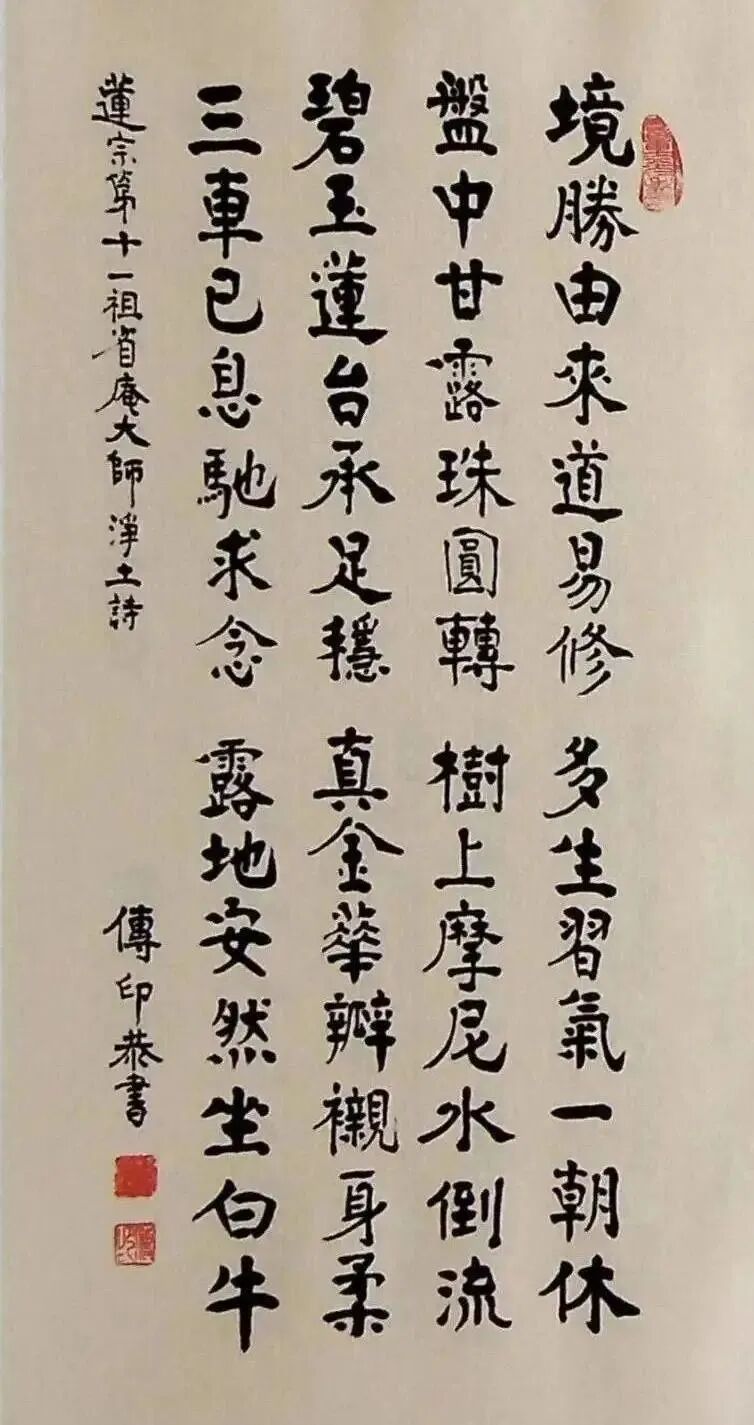 境勝由來道易修 多生習氣一朝休
盤中甘露珠圓轉 樹上摩尼水倒流
碧玉蓮台承足穩 真金華瓣襯身柔
三車已息馳求念 露地安然坐白牛
蓮宗第十一祖省庵大師淨土詩
傳印恭書